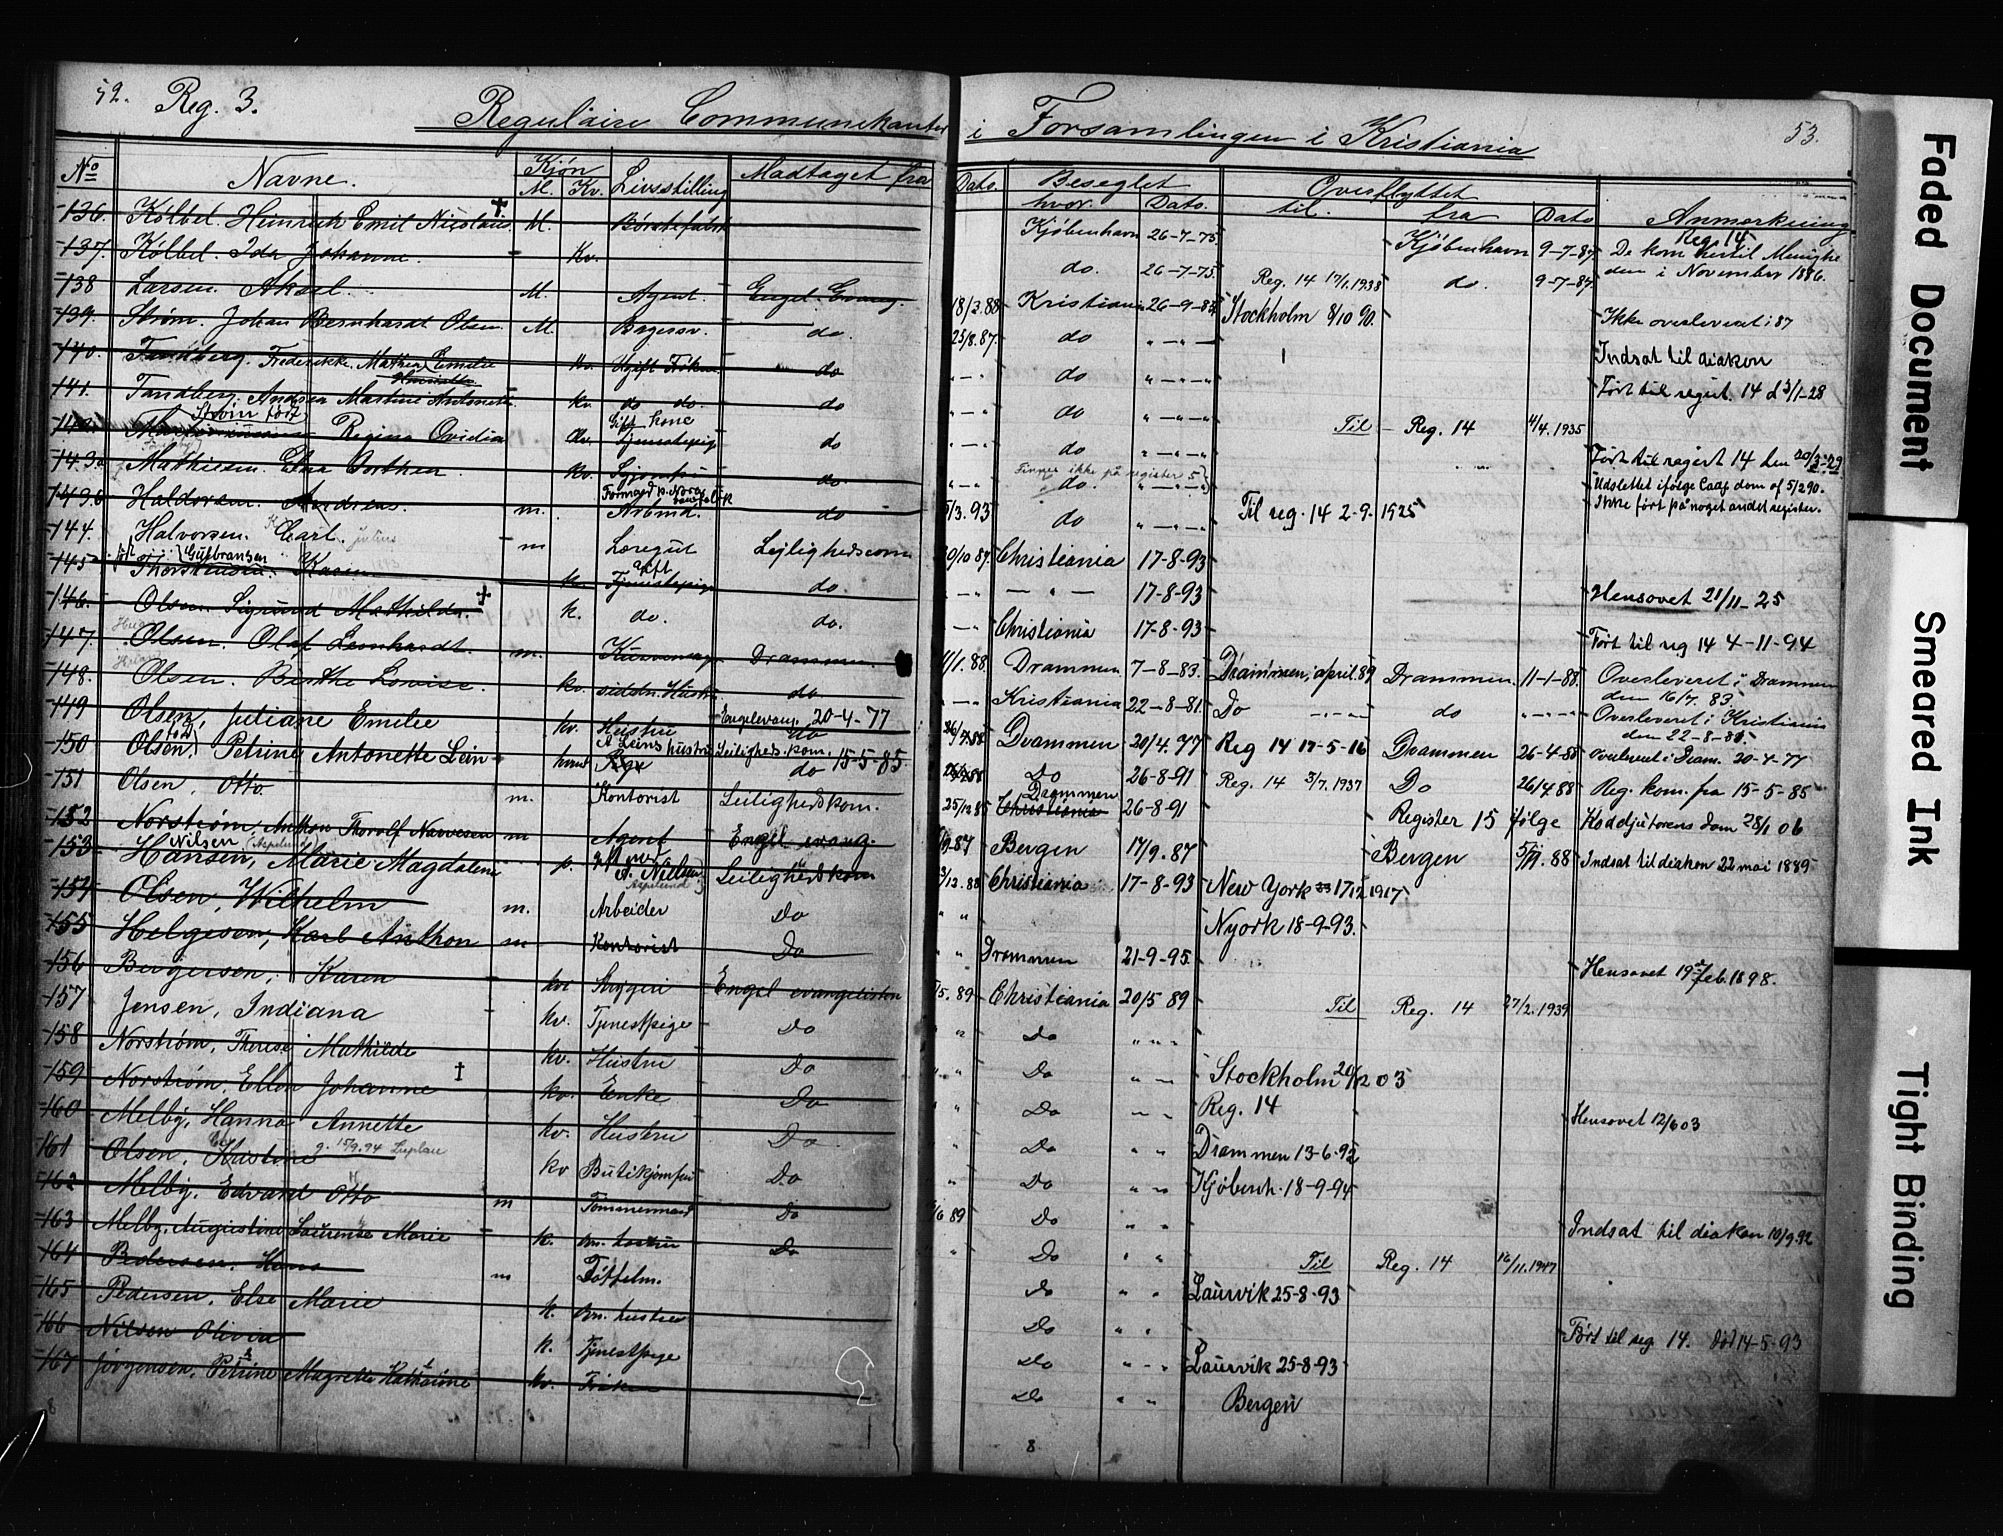 52. Reg. 3. Regulaire Communikanter i Forsamlingen i Kristiania 53.
No Navne. Kjøn Livsstilling Modtaget fra Dato Beseglet Overflyttet Anmærkning
M. Kv. hvor. Dato. til. fra Dato
136. Kølbel. Heinrich Emil Nicolaus † M. Børstefabr. Kjøbenhavn 26-7-75 Kjøbenhavn 9-7-87 De kom hertil Menighe
Reg. 14
137. Kølbel. Ida Johanne. Kv. do. 26-7-75. Reg. 14 17/1.1938 do. 9-7-87 den i November 1886.
138 Larsen. Aksel. M. Agent. Engel. Evang. 18/3.88 Kristiania 26-9-87 Stockholm 8/10 90. Ikke overleveret i 87
139. Strøm. Johan Bernhardt Olsen. M. Bagersv. do. 25/8.87. do " — " — Indsat til diakon
140. Tandberg. Frederikke. Mathea Emilie Kv. Ugift Frøken do " — " do " — " — " Ført til regist. 14 d 3/1-28
Henriette
141. Tandberg. Andrea Martine Antonette Kv. do do. do " — " do " — " — " Til Reg. 14 4/4.1935
Strøm født
142. Regina Ovidia Kv. Gift kone Tjenestepig do " — " do " — " — " Ført til regist 14 den 20/3-29
143a Mathiesen. Elna Dorthea Kv. Syjomfru do. " — " do. " — " — " Udslettet ifølge Caap dom af 5/2 90.
Finnes ikke på register 5 Ikke ført på noget andet register.
143b Haldorsen. Andreas. m. Formand v. Norsk Arbmd. do 5/3.93 do " — " — " Til reg. 14 2-9-1925
144. Halvorsen. Carl. Julius m Læregut Lejlighedscom 30/10 87. Christiania 17-8-93
145 Thorstensen. Karin k. gift Tjenestepige do. " — " — " — 17-8-93 Hensovet 21/11-25
født Gulbransen
146. Olsen. Sigrund Mathilde. † k. do. do. — " — Christiania 17-8-93 Ført til reg 14 4-11-94
147. Olsen. Olaf Leonhardt. m. Drammen. 11/1.88 Drammen 7-8-83. Drammen, april. 89 Drammen. 11-1-88. Overleveret i Drammen
den 16/7. 83.
148. Olsen. Birthe Lovise. kv. do " — " Kristiania 22-8-81. Do " — " — " do " — " — " Overleveret i Kristiania
den 22-8-81.
149 Olsen, Juliane Emilie kv. Hustru Engelevang. 20-4-77 do 26/4 88 Drammen 20/4. 77 Reg 14 17-5-16 Drammen 26-4-88 Overleveret i Dram. 20-4-77
150 Olsen, Petrine Antonette Lein kvind A Leins hustru Leiligheds.kom. do 15-5-85 Do 26-8-91 Reg. 14 3/7.1937 Do 26/4 88 Reg. kom. fra 15-5-85
151 Olsen, Otto m. Kontorist Leilighedskom. 25/12 85 Drammen Christiania 26-8-91 Register 15 følge Koddjutorens dom 28/1 06
152 Norstrøm, Anthon Thorolf Navvesen m Agent Engel evang. 5/9-87 Bergen 17/9. 87 Bergen 5/9. 88 Indsat til diakon 22 mai 1889
153 Hansen, Marie Magdalene Nilsen (Aspelund) A. Nielsen Aspelund Leilighedskom 3/12.88 Christiania 17-8-93 New York 17/2 1917.
154 Olsen, Wilhelm m. Arbeider Do " " Nyork 18-9-93.
155 Helgesen, Karl Anthon m Kontorist Do " " Drammen 21-9-95. Hensovet 19 feb. 1898.
156 Bergersen, Karen kv Strygeri Engel evangelisten /5. 89 Christiania 20/5 89 Til Reg. 14 27/2.1939
157 Jensen, Indiana kv. Tjenestpige Do " Do " " "
158 Norstrøm, Therese Mathilde kv. Hustru Do " " Do " — Stockholm 20/12 03
159 Norstrøm, Ellen Johanne † kv. Enke Do " Do " — " Reg. 14 Hensovet 12/6 03
160 Melby, Hanna Annette kv. Hustru Do " Do " " Drammen 13-6-92
161 Olsen, Kristine g. 15/9.94 Luplau kv Butikjomfru Do " Do " — " Kjøbenh. 18-9-94
162 Melby, Edvard Otto m Tømmermand Do /6 89 Do " " Indsat til diakon 10/9.92
163 Melby, Augustine Laurense Marie k. Bn. hustru Do " Do " " Til Reg. 14 16/11.1947
164 Pedersen. Hans m Tøffelm. Do " " Laurvik 25-8-93
165 Pedersen, Else Marie k. Bn. hustru Do " " Ført til reg 14. død 14-5-93
166 Nilsen Olivia k. Tjenestpige Do " — " Laurvik 25-8-93
167 Jørgensen, Petrine Magrette Kathrine kv. Frøken Do " " Bergen
8 8
Faded Document
Smeared Ink
Tight Binding